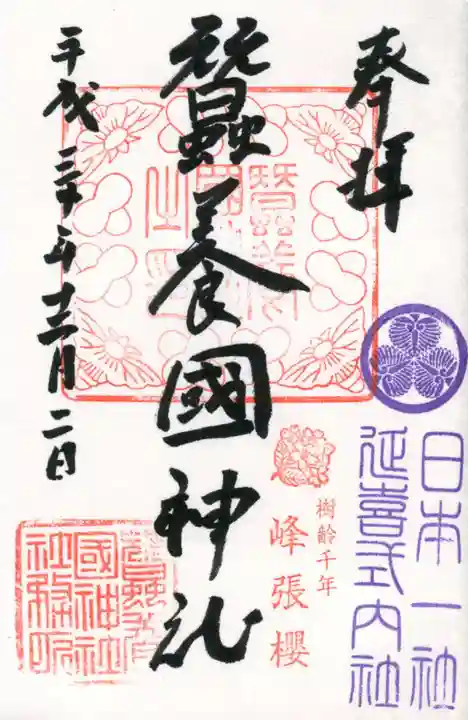 奉拝
日本一社
延喜式内社
樹齢千年
峰張櫻
蠶養國神社
平成三十年十二月二日
蠶養
國神社
社務所